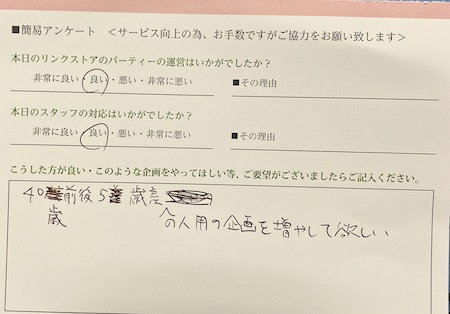 ■簡易アンケート ＜サービス向上の為、お手数ですがご協力をお願い致します＞
本日のリンクストアのパーティーの運営はいかがでしたか？
非常に良い・良い・悪い・非常に悪い ■その理由
本日のスタッフの対応はいかがでしたか？
非常に良い・良い・悪い・非常に悪い ■その理由
こうした方が良い・このような企画をやってほしい等、ご要望がございましたらご記入ください。
40前後5歳
歳 の人用の企画を増やして欲しい